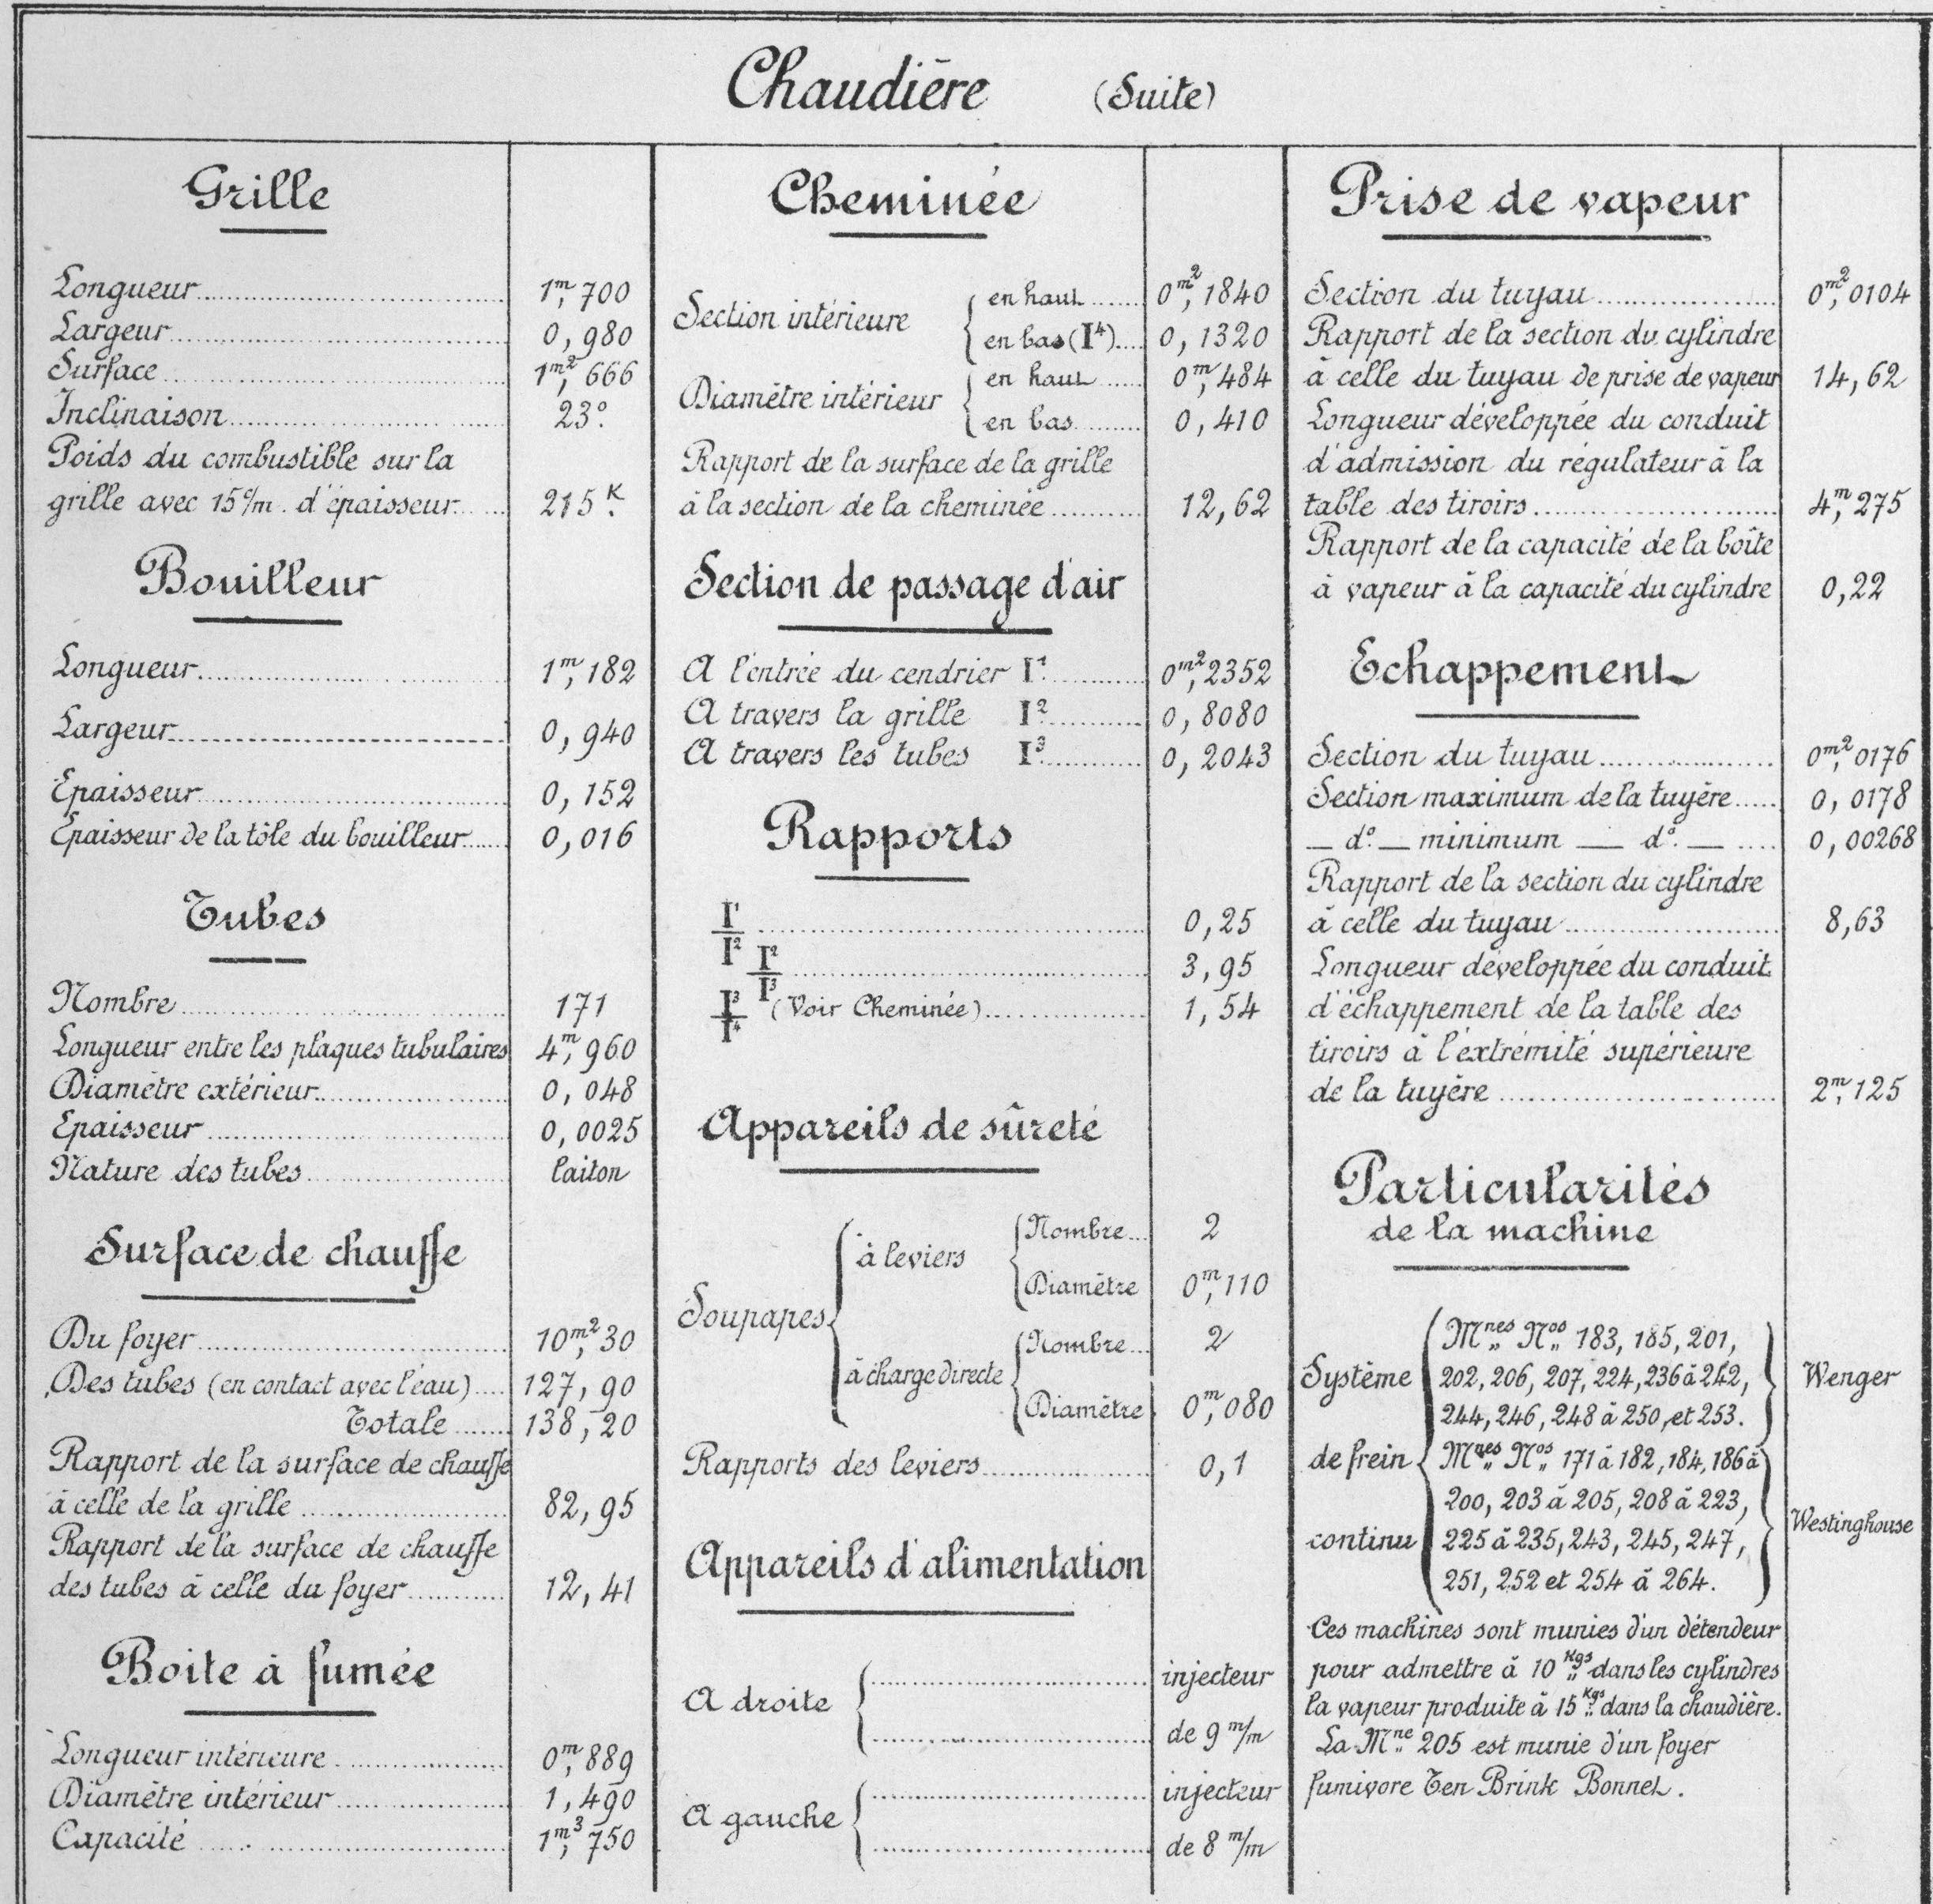 Chaudière (Suite)
Grille
Longueur 1m,700
Largeur 0,980
Surface 1m²,666
Inclinaison 23°
Poids du combustible sur la
grille avec 15c/m. d'épaisseur 215K.
Bouilleur
Longueur 1m,182
Largeur 0,940
Epaisseur 0,152
Epaisseur de la tôle du bouilleur 0,016
Tubes
Nombre 171
Longueur entre les plaques tubulaires 4m,960
Diamètre extérieur 0,048
Epaisseur 0,0025
Nature des tubes laiton
Surface de chauffe
Du foyer 10m²,30
Des tubes (en contact avec l'eau) 127,90
Totale 138,20
Rapport de la surface de chauffe
à celle de la grille 82,95
Rapport de la surface de chauffe
des tubes à celle du foyer 12,41
Boite à fumée
Longueur intérieure 0m,889
Diamètre intérieur 1,490
Capacité 1m³,750
Cheminée
Section intérieure { en haut 0m²,1840
en bas (I⁴) 0,1320
Diamètre intérieur { en haut 0m,484
en bas 0,410
Rapport de la surface de la grille
à la section de la cheminée 12,62
Section de passage d'air
A l'entrée du cendrier I¹. 0m²,2352
A travers la grille I². 0,8080
A travers les tubes I³. 0,2043
Rapports
I¹/I² 0,25
I²/I³ 3,95
I³/I⁴ (Voir Cheminée) 1,54
Appareils de sûreté
Soupapes { à leviers { Nombre 2
Diamètre 0m,110
à charge directe { Nombre 2
Diamètre 0m,080
Rapports des leviers 0,1
Appareils d'alimentation
A droite { injecteur
de 9 m/m
A gauche { injecteur
de 8 m/m
Prise de vapeur
Section du tuyau 0m²,0104
Rapport de la section du cylindre
à celle du tuyau de prise de vapeur 14,62
Longueur développée du conduit
d'admission du régulateur à la
table des tiroirs 4m,275
Rapport de la capacité de la boîte
à vapeur à la capacité du cylindre 0,22
Echappement
Section du tuyau 0m²,0176
Section maximum de la tuyère 0,0178
— d°. — minimum — d°. — 0,00268
Rapport de la section du cylindre
à celle du tuyau 8,63
Longueur développée du conduit
d'échappement de la table des
tiroirs à l'extrémité supérieure
de la tuyère 2m,125
Particularités
de la machine
Système de frein continu
{ Mnes Nos 183, 185, 201,
202, 206, 207, 224, 236 à 242, } Wenger
244, 246, 248 à 250, et 253.
{ Mnes Nos 171 à 182, 184, 186 à
200, 203 à 205, 208 à 223, } Westinghouse
225 à 235, 243, 245, 247,
251, 252 et 254 à 264.
Ces machines sont munies d'un détendeur
pour admettre à 10 Kgs dans les cylindres
la vapeur produite à 15 Kgs dans la chaudière.
La Mne 205 est munie d'un foyer
fumivore Ten Brink Bonnet.